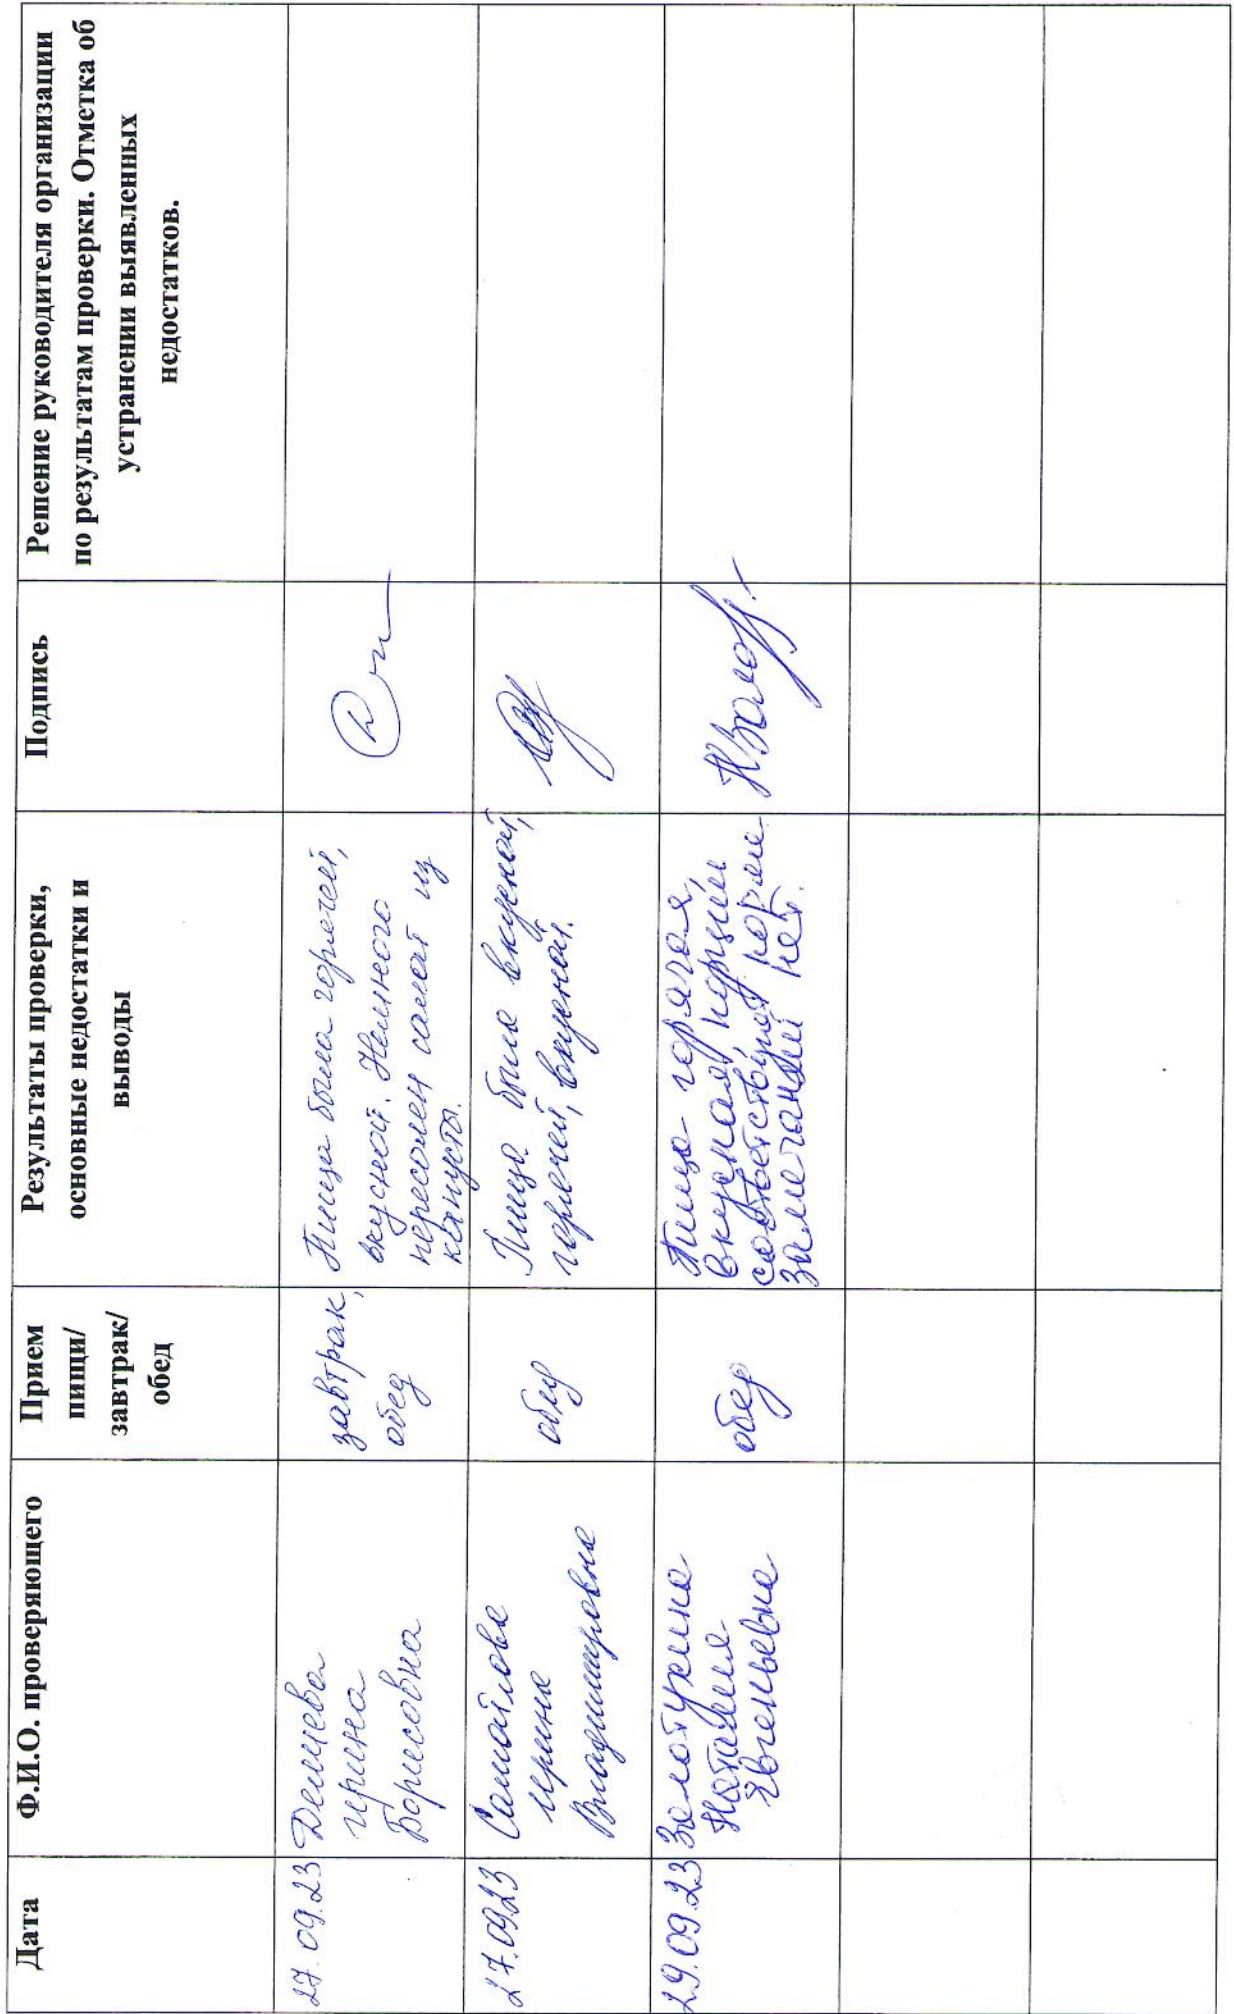 Дата
Ф.И.О. проверяющего
Прием
пищи/
завтрак/
обед
Результаты проверки,
основные недостатки и
выводы
Подпись
Решение руководителя организации
по результатам проверки. Отметка об
устранении выявленных
недостатков.
27.09.23
Демцева
Ирина
Борисовна
завтрак,
обед
Пища была горячей,
вкусной. Немного
пересолен салат из
капусты.
27.09.23
Самойлова
Ирина
Владимировна
обед
Пища была вкусной,
горячей, вкусной.
29.09.23
Золотухина
Наталья
Евгеньевна
обед
Пища горячая,
вкусная, порции
соответствуют норме.
Замечаний нет.